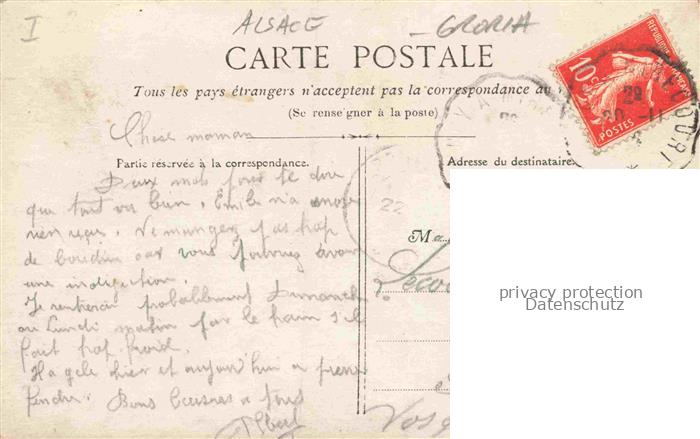 I
ALSACE
GLORIA
CARTE POSTALE
Tous les pays étrangers n'acceptent pas la correspondance au
(Se renseigner à la poste)
RÉPUBLIQUE FRANÇAISE
10c
POSTES
Chère maman
Partie réservée à la correspondance.
Adresse du destinataire.
Deux mots pour te dire
que tout va bien, Emile n'a encore
rien reçu. Ne mangez pas trop
de boudin car vous pourriez avoir
une indigestion.
Je rentrerai probablement Dimanche
ou Lundi matin par le train s'il
fait trop froid.
Ha gelé hier et aujourd'hui a
fendre. Bons baisers a tous
Albert
22
Ma
Vos
privacy protection
Datenschutz